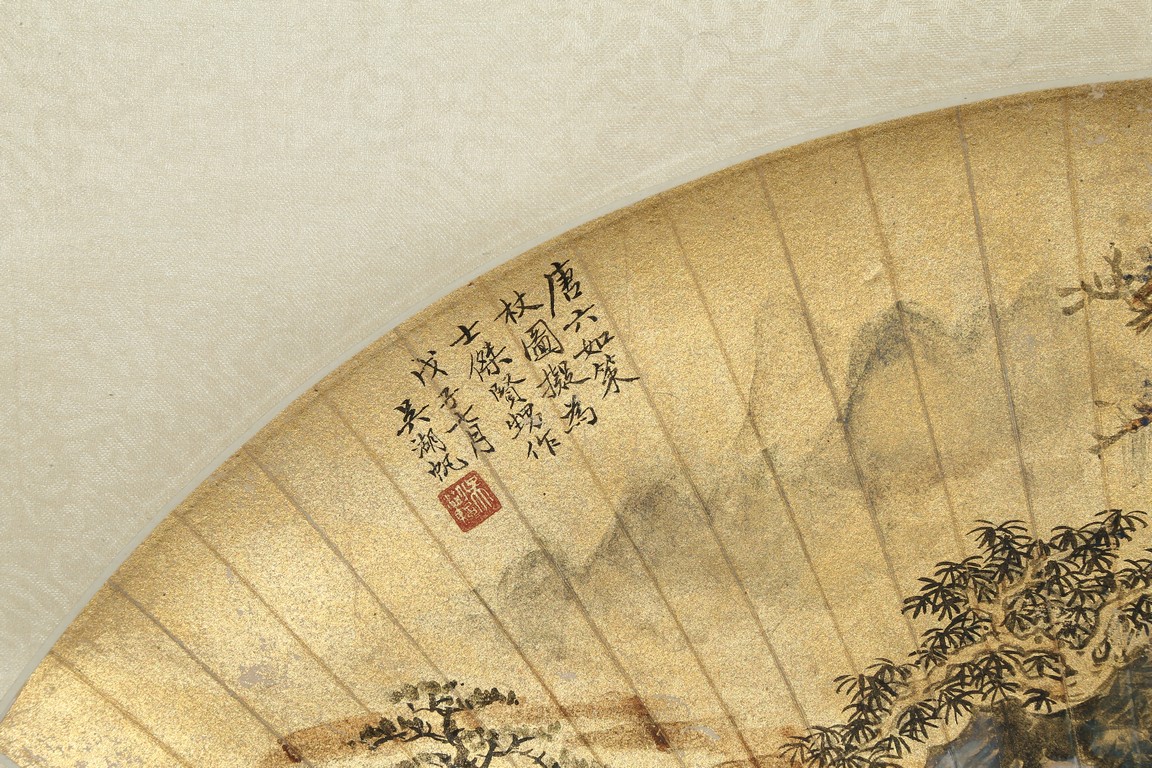 唐六如策
杖圖擬為
士傑賢甥作
戊子七月
吳湖帆